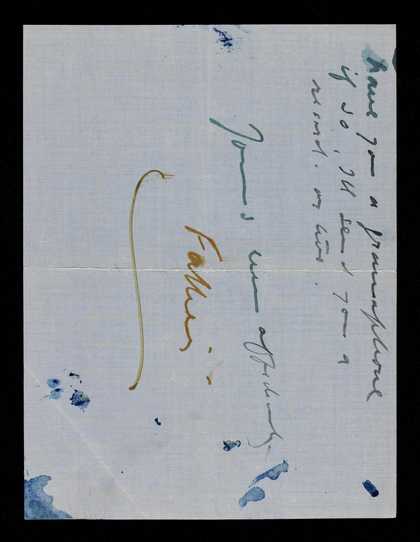 Have you a gramophone
if so, I'll send you a
record. or two.
Yours ever affectionately
Father